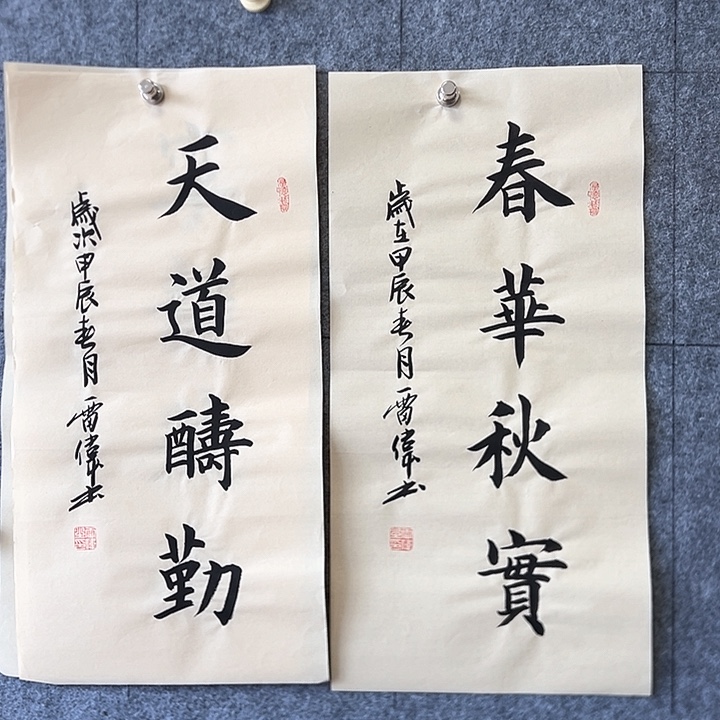 春華秋實
歲在甲辰春月雷偉书
天道酬勤
歲次甲辰春月雷偉书